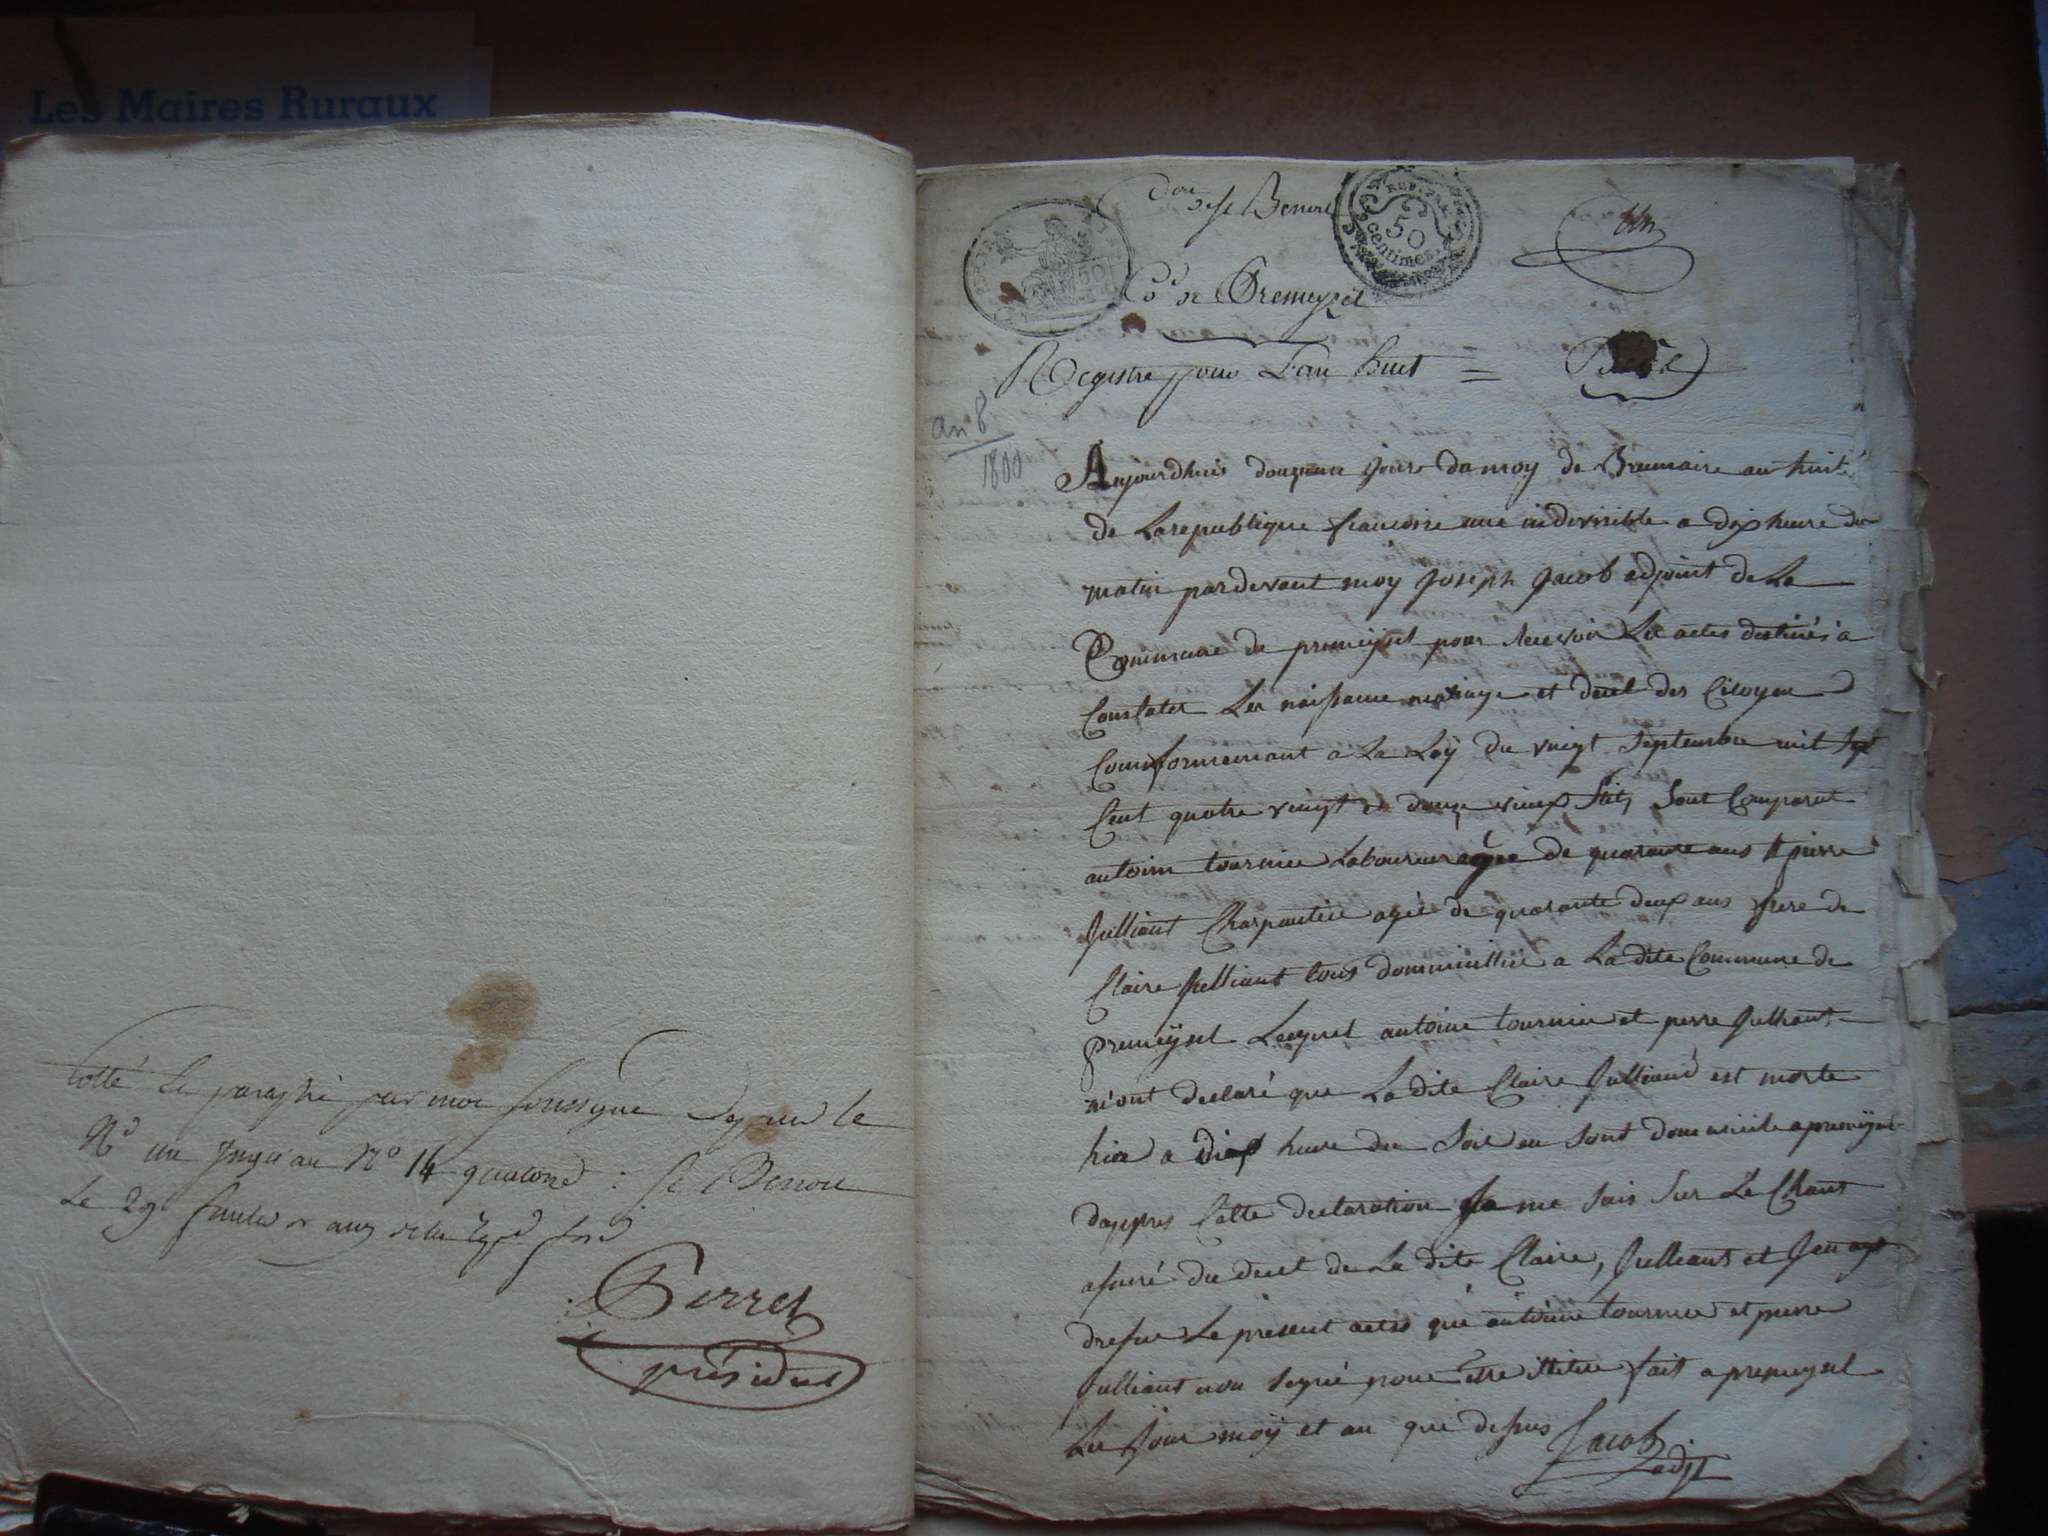 Les Maires Ruraux
Cotté et paraphé par moi soussigné depuis le
N° un jusqu'au N° 14 quatorze : St Benoit
Le 29
Perret
président
St Benoit
REP. FRA
50
centimes
50
un
Cne de Premeyzel
Registre pour L'an huit =
an 8
1800
Aujourdhuis douzieme jours du moy de Brumaire an huite
de La republique francoise une indivisible a dix heure du
matin pardevant moy Joseph Jacob adjoint de La
Commune de premeysel pour recevoir Les actes destinés a
Constater Les naissance mariage et decet des Citoyen
Conformement a La Loÿ du vingt Septembre mil sept
Cent quatre vingt et douze vieux stil, sont Comparut
antoine tournier Laboureur agée de quarante ans et pierre
Julliant Charpantier agée de quarante deux ans frere de
Claire Julliant tous dommicillié a La dite Commune de
premeÿsel Lesquel antoine tournier et pierre Julliant
m'ont declaré que La dite Claire Julliand est morte
hier a dix heure du soir en sont domicile a premeÿsel
dappres Cette declaration Je me suis sur Le Chant
assuré du decet de La dite Claire, Julliant et J'en ayt
dressue Le present actes que antoine tournier et pierre
Julliant non segné pour etre ittitere fait a premeysel
Les Jour moÿ et an que dessus Jacob
adjt